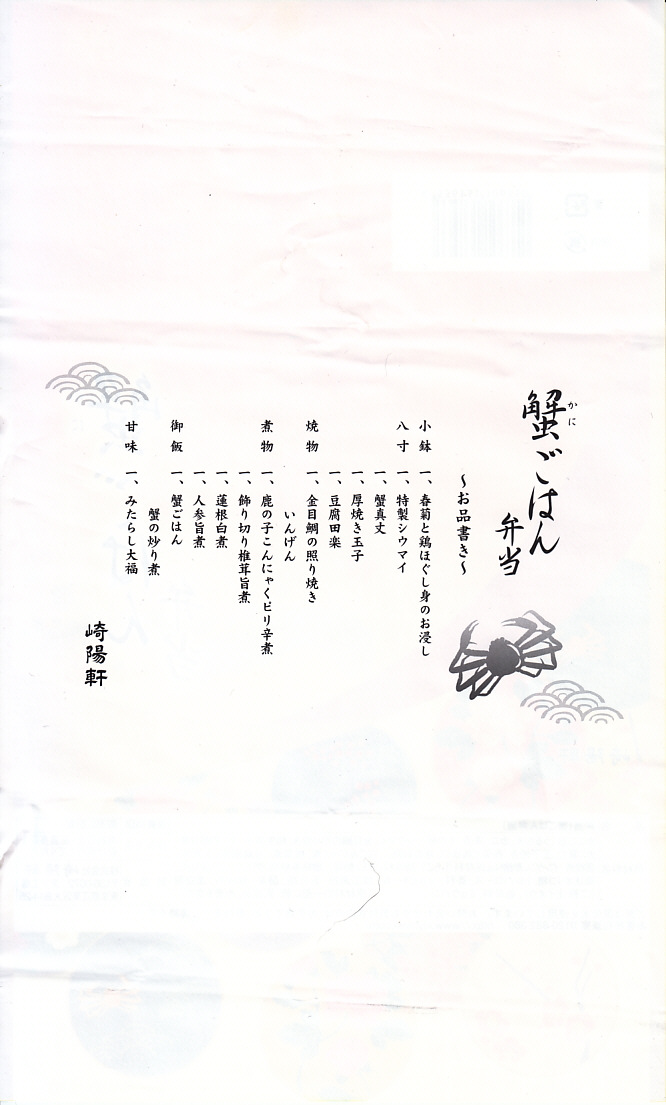 蟹ごはん
かに
弁当
～お品書き～
小鉢 一、春菊と鶏ほぐし身のお浸し
八寸 一、特製シウマイ
一、蟹真丈
一、厚焼き玉子
一、豆腐田楽
焼物 一、金目鯛の照り焼き
いんげん
煮物 一、鹿の子こんにゃくピリ辛煮
一、飾り切り椎茸旨煮
一、蓮根白煮
一、人参旨煮
御飯 一、蟹ごはん
蟹の炒り煮
甘味 一、みたらし大福
崎陽軒